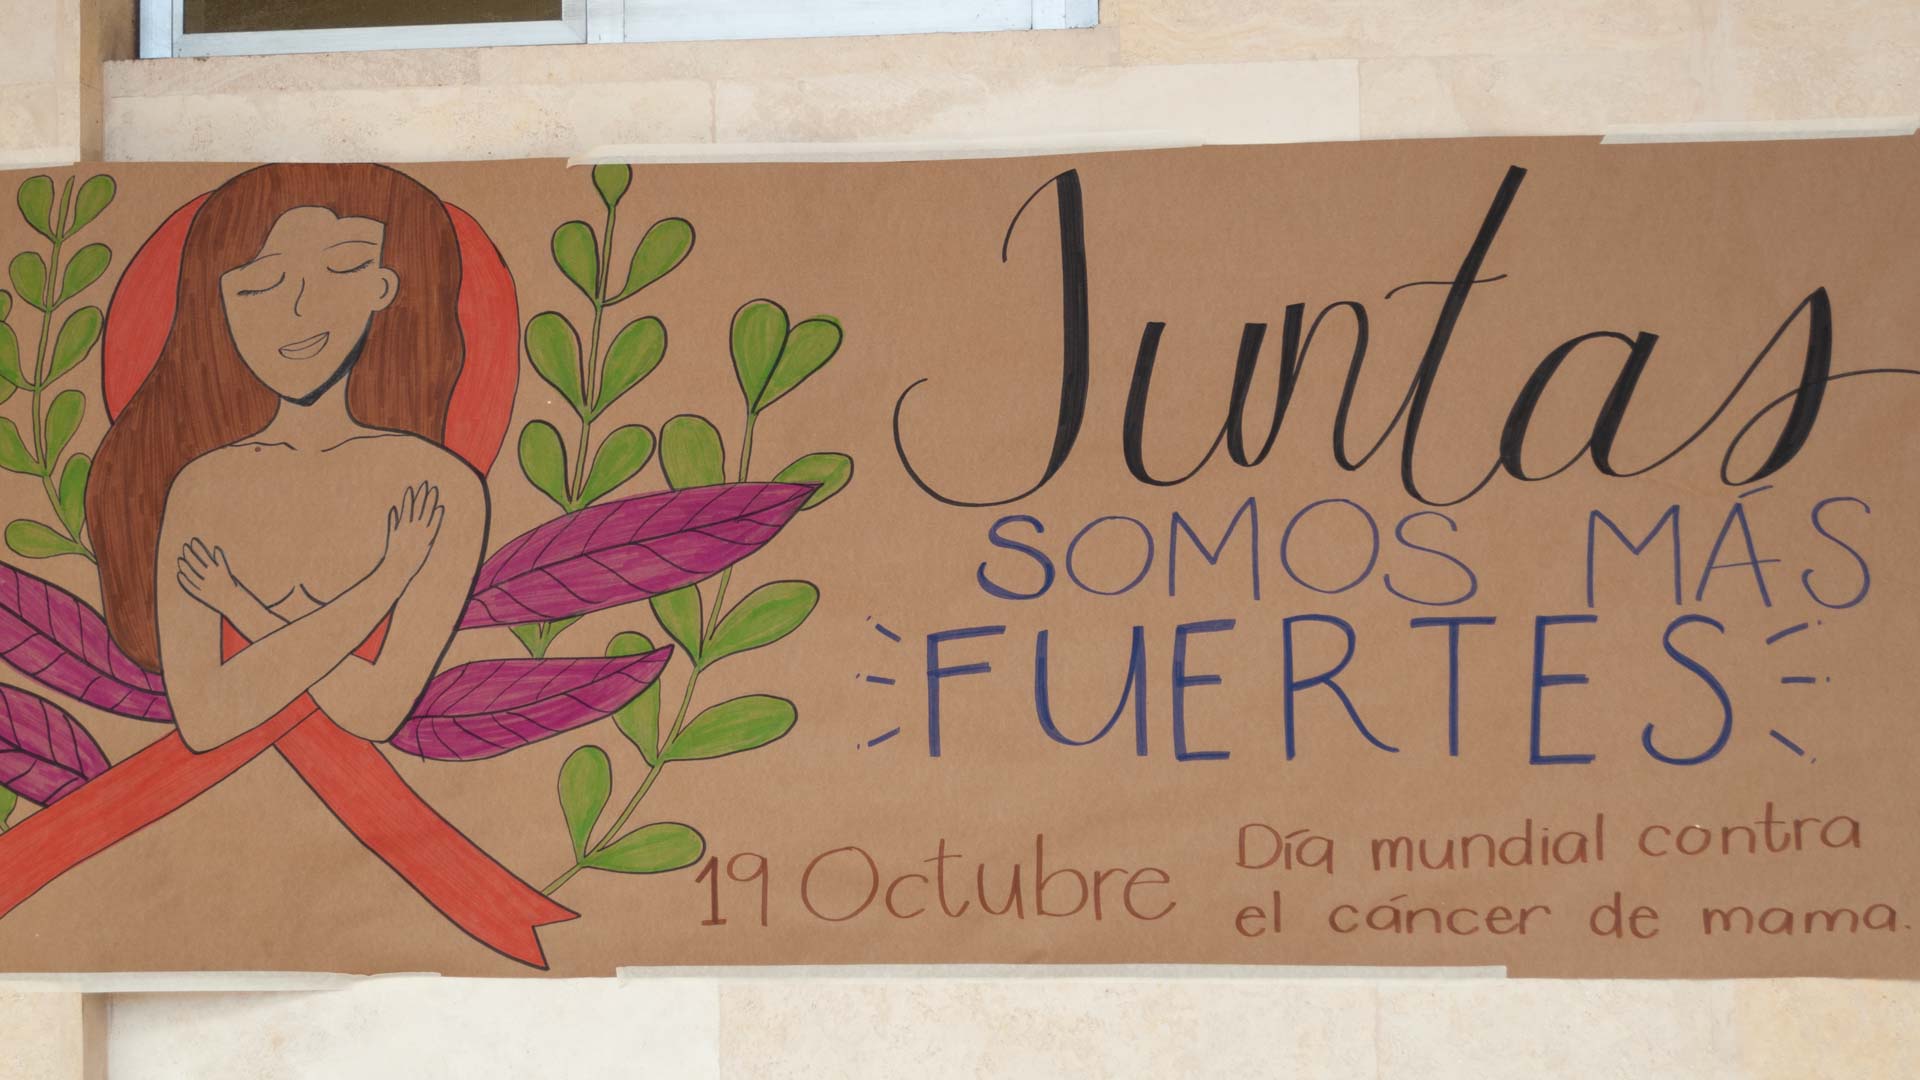 Juntas
SOMOS MÁS
FUERTES
19 Octubre
Día mundial contra
el cáncer de mama.